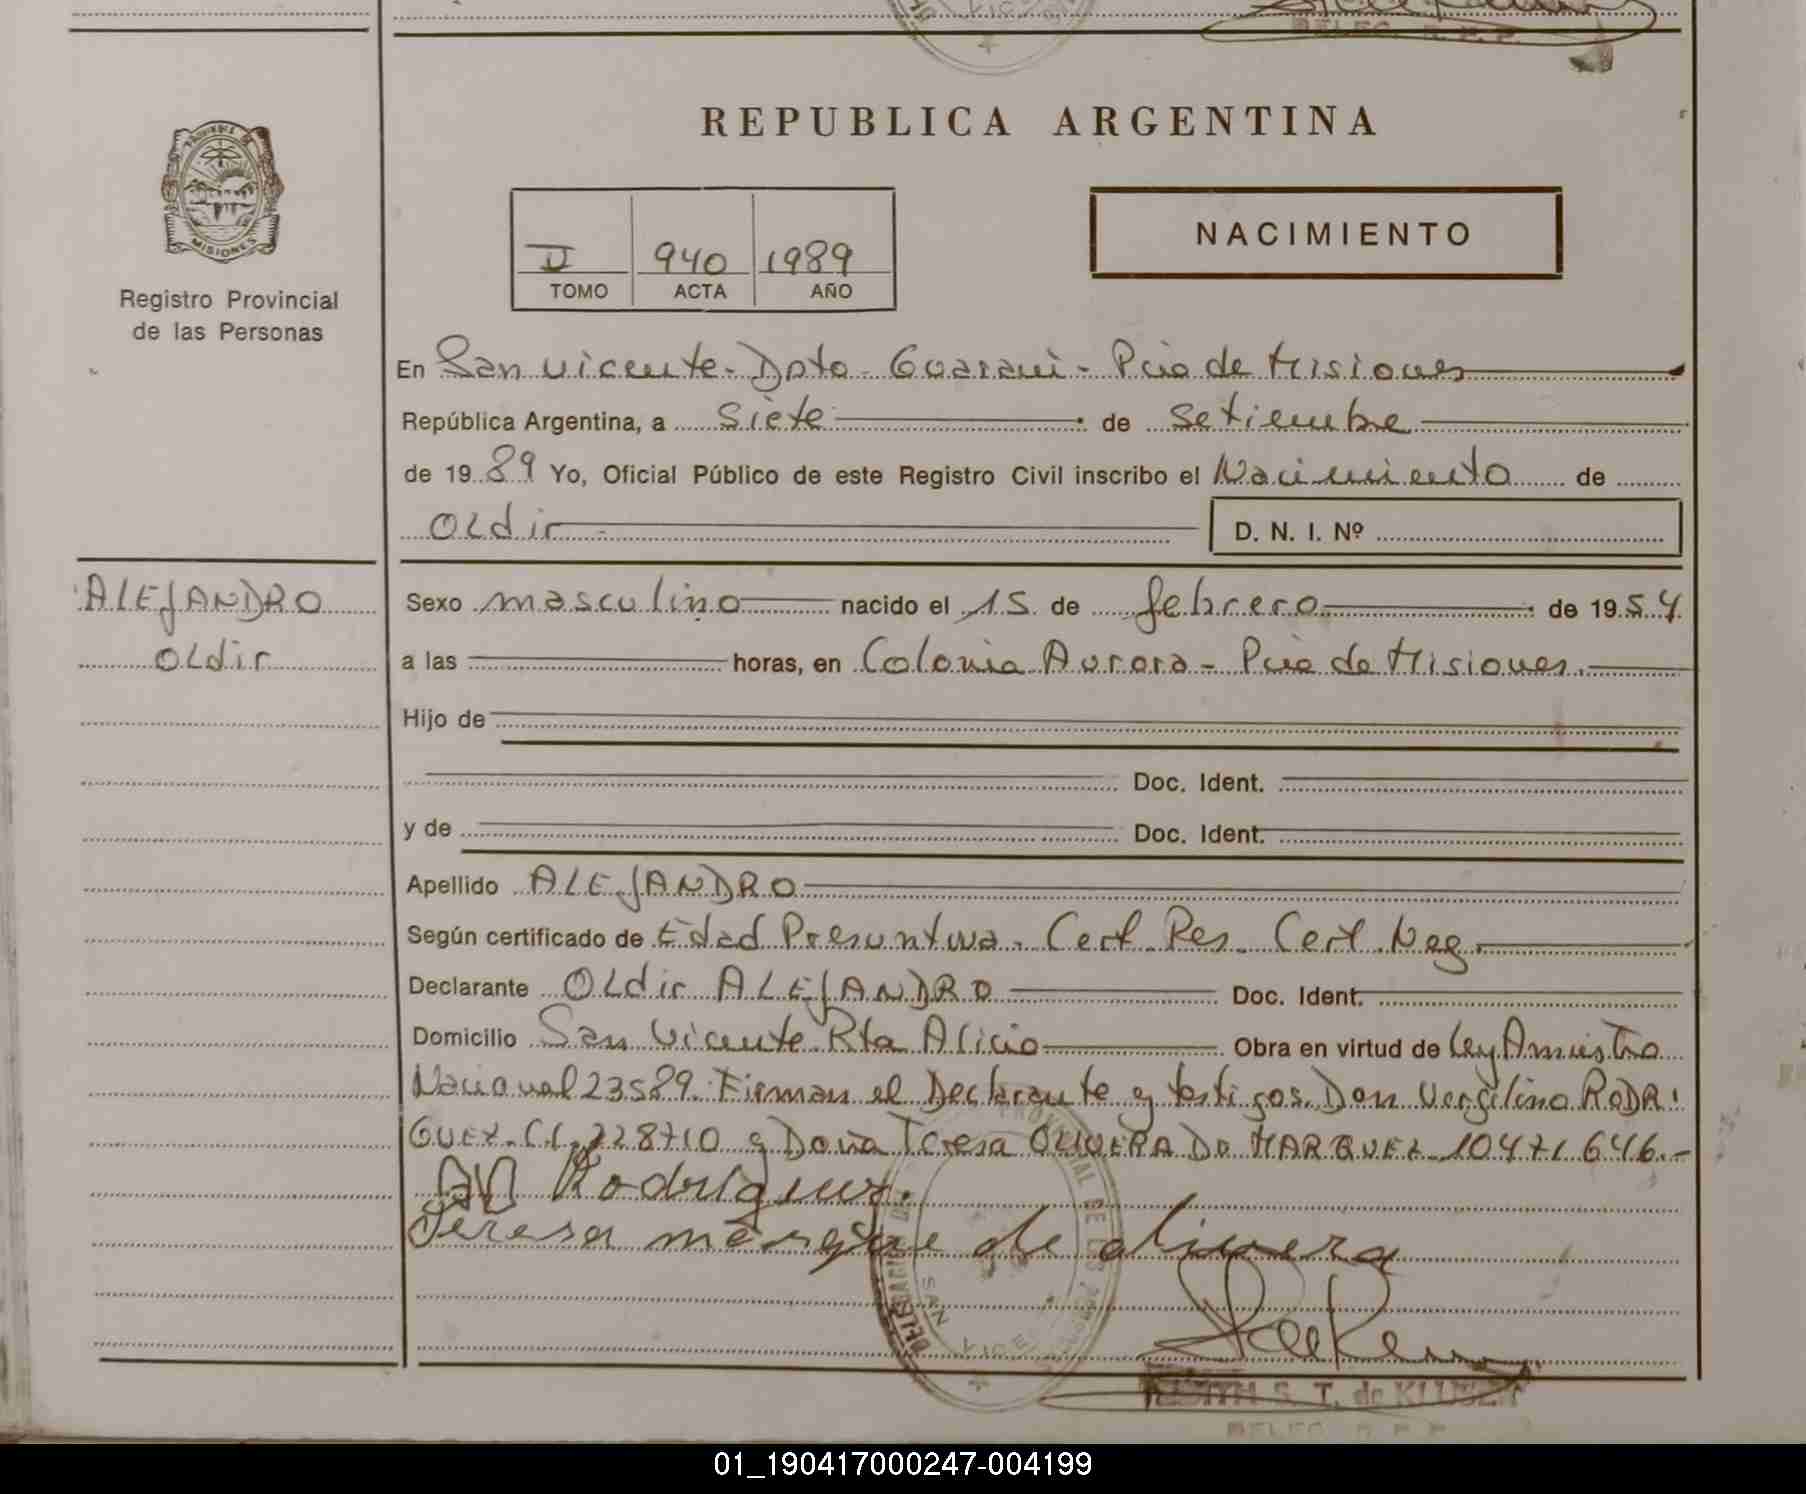 REPUBLICA ARGENTINA
PROVINCIA DE
MISIONES
Registro Provincial
de las Personas
II 940 1989
TOMO ACTA AÑO
NACIMIENTO
En San Vicente - Dpto - Guarani - Pcia de Misiones
República Argentina, a siete de Setiembre
de 1989 Yo, Oficial Público de este Registro Civil inscribo el Nacimiento de
OLdir D. N. I. Nº
ALEJANDRO
OLdir
Sexo masculino nacido el 15 de febrero de 1954
a las horas, en Colonia Aurora - Pcia de Misiones.
Hijo de
Doc. Ident.
y de Doc. Ident.
Apellido ALEJANDRO
Según certificado de Edad Presuntiva. Cert. Res. Cert. Neg.
Declarante OLdir ALEJANDRO Doc. Ident.
Domicilio San Vicente Rta Alicia Obra en virtud de Ley Amnistia
Nacional 23589. Firman el Declarante y testigos. Don Vergilino RODRI
GUEZ. C.I. 228710 y Doña Teresa OLIVERA De MARQUEZ 10471646.-
Rodriguez.
Teresa de olivera
SAN VICENTE
DELEG. R. P. P.
01_190417000247-004199